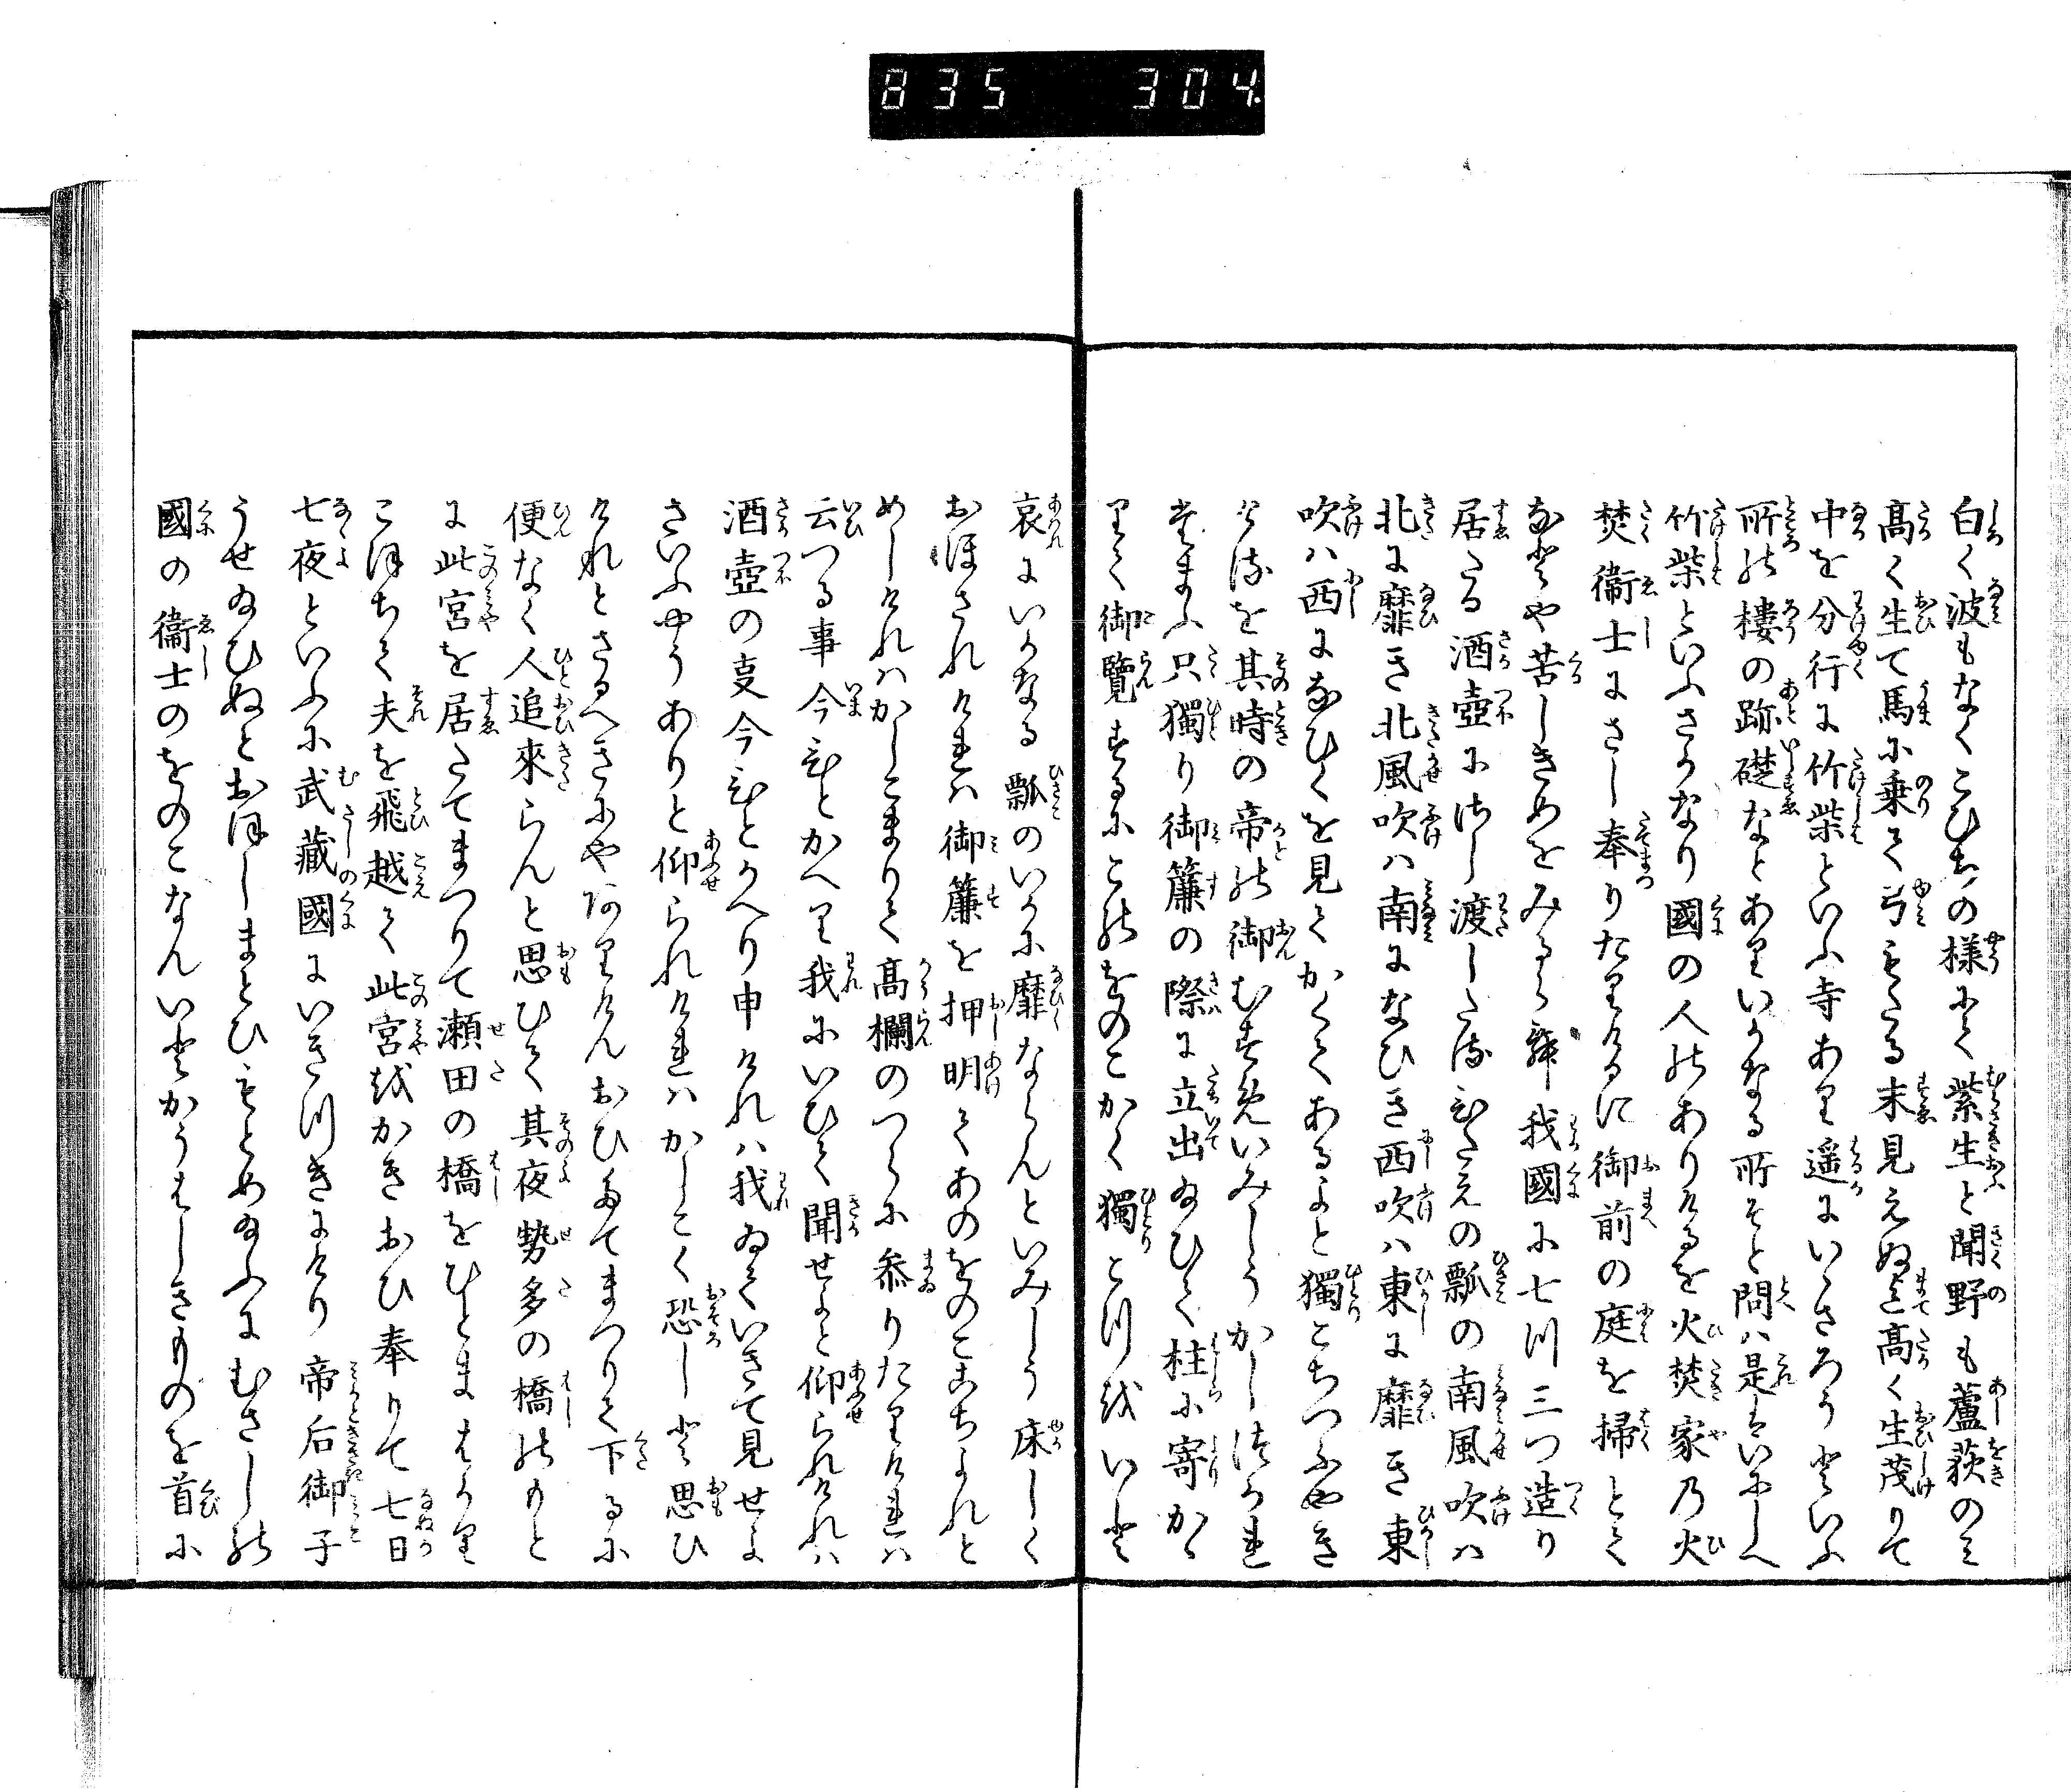 835 304
白く波もなくこひちの様にて紫生と聞野も蘆荻のミ
高く生て馬に乗て弓もたる末見えぬ迄高く生茂りて
中を分行に竹柴といふ寺あり遥にいゝさろうといふ
所の樓の跡礎なとありいかなる所そと問ハ是はいにしへ
竹柴といふさかなり國の人のありけるを火焚家乃火
焚衞士にさし奉りたりけるに御前の庭を掃とて
なとや苦しきめをみるらん我國に七つ三つ造り
居たる酒壺にさし渡したるひたえの瓢の南風吹ハ
北に靡き北風吹ハ南になひき西吹ハ東に靡き東
吹ハ西になひくを見てかくてあるよと獨こちつふやき
けるを其時の帝の御むすめいみしうかしつかれ
たまふ只獨り御簾の際に立出給ひて柱に寄かゝ
りて御覽するにこのをのこかく獨こつをいと
哀にいかなる瓢のいかに靡ならんといみしう床しく
おほされけれは御簾を押明てあのをのここちよれと
めしけれハかしこまりて高欄のつらに參りたりけれハ
云つる事今ひとかへり我にいひて聞せよと仰られけれハ
酒壺の事今ひとかへり申けれハ我ゐていきて見せよ
さいふやうありと仰られけれハかしこく恐しと思ひ
けれとさるへきにやありけんおひたてまつりて下るに
便なく人追來らんと思ひて其夜勢多の橋のもと
に此宮を居たてまつりて瀬田の橋をひとまはかり
こほちて夫を飛越て此宮をかきおひ奉りて七日
七夜といふに武藏國にいきつきにけり帝后御子
うせ給ひぬとおほしまとひもとめ給ふにむさしの
國の衞士のをのこなんいとかうはしきものを首に